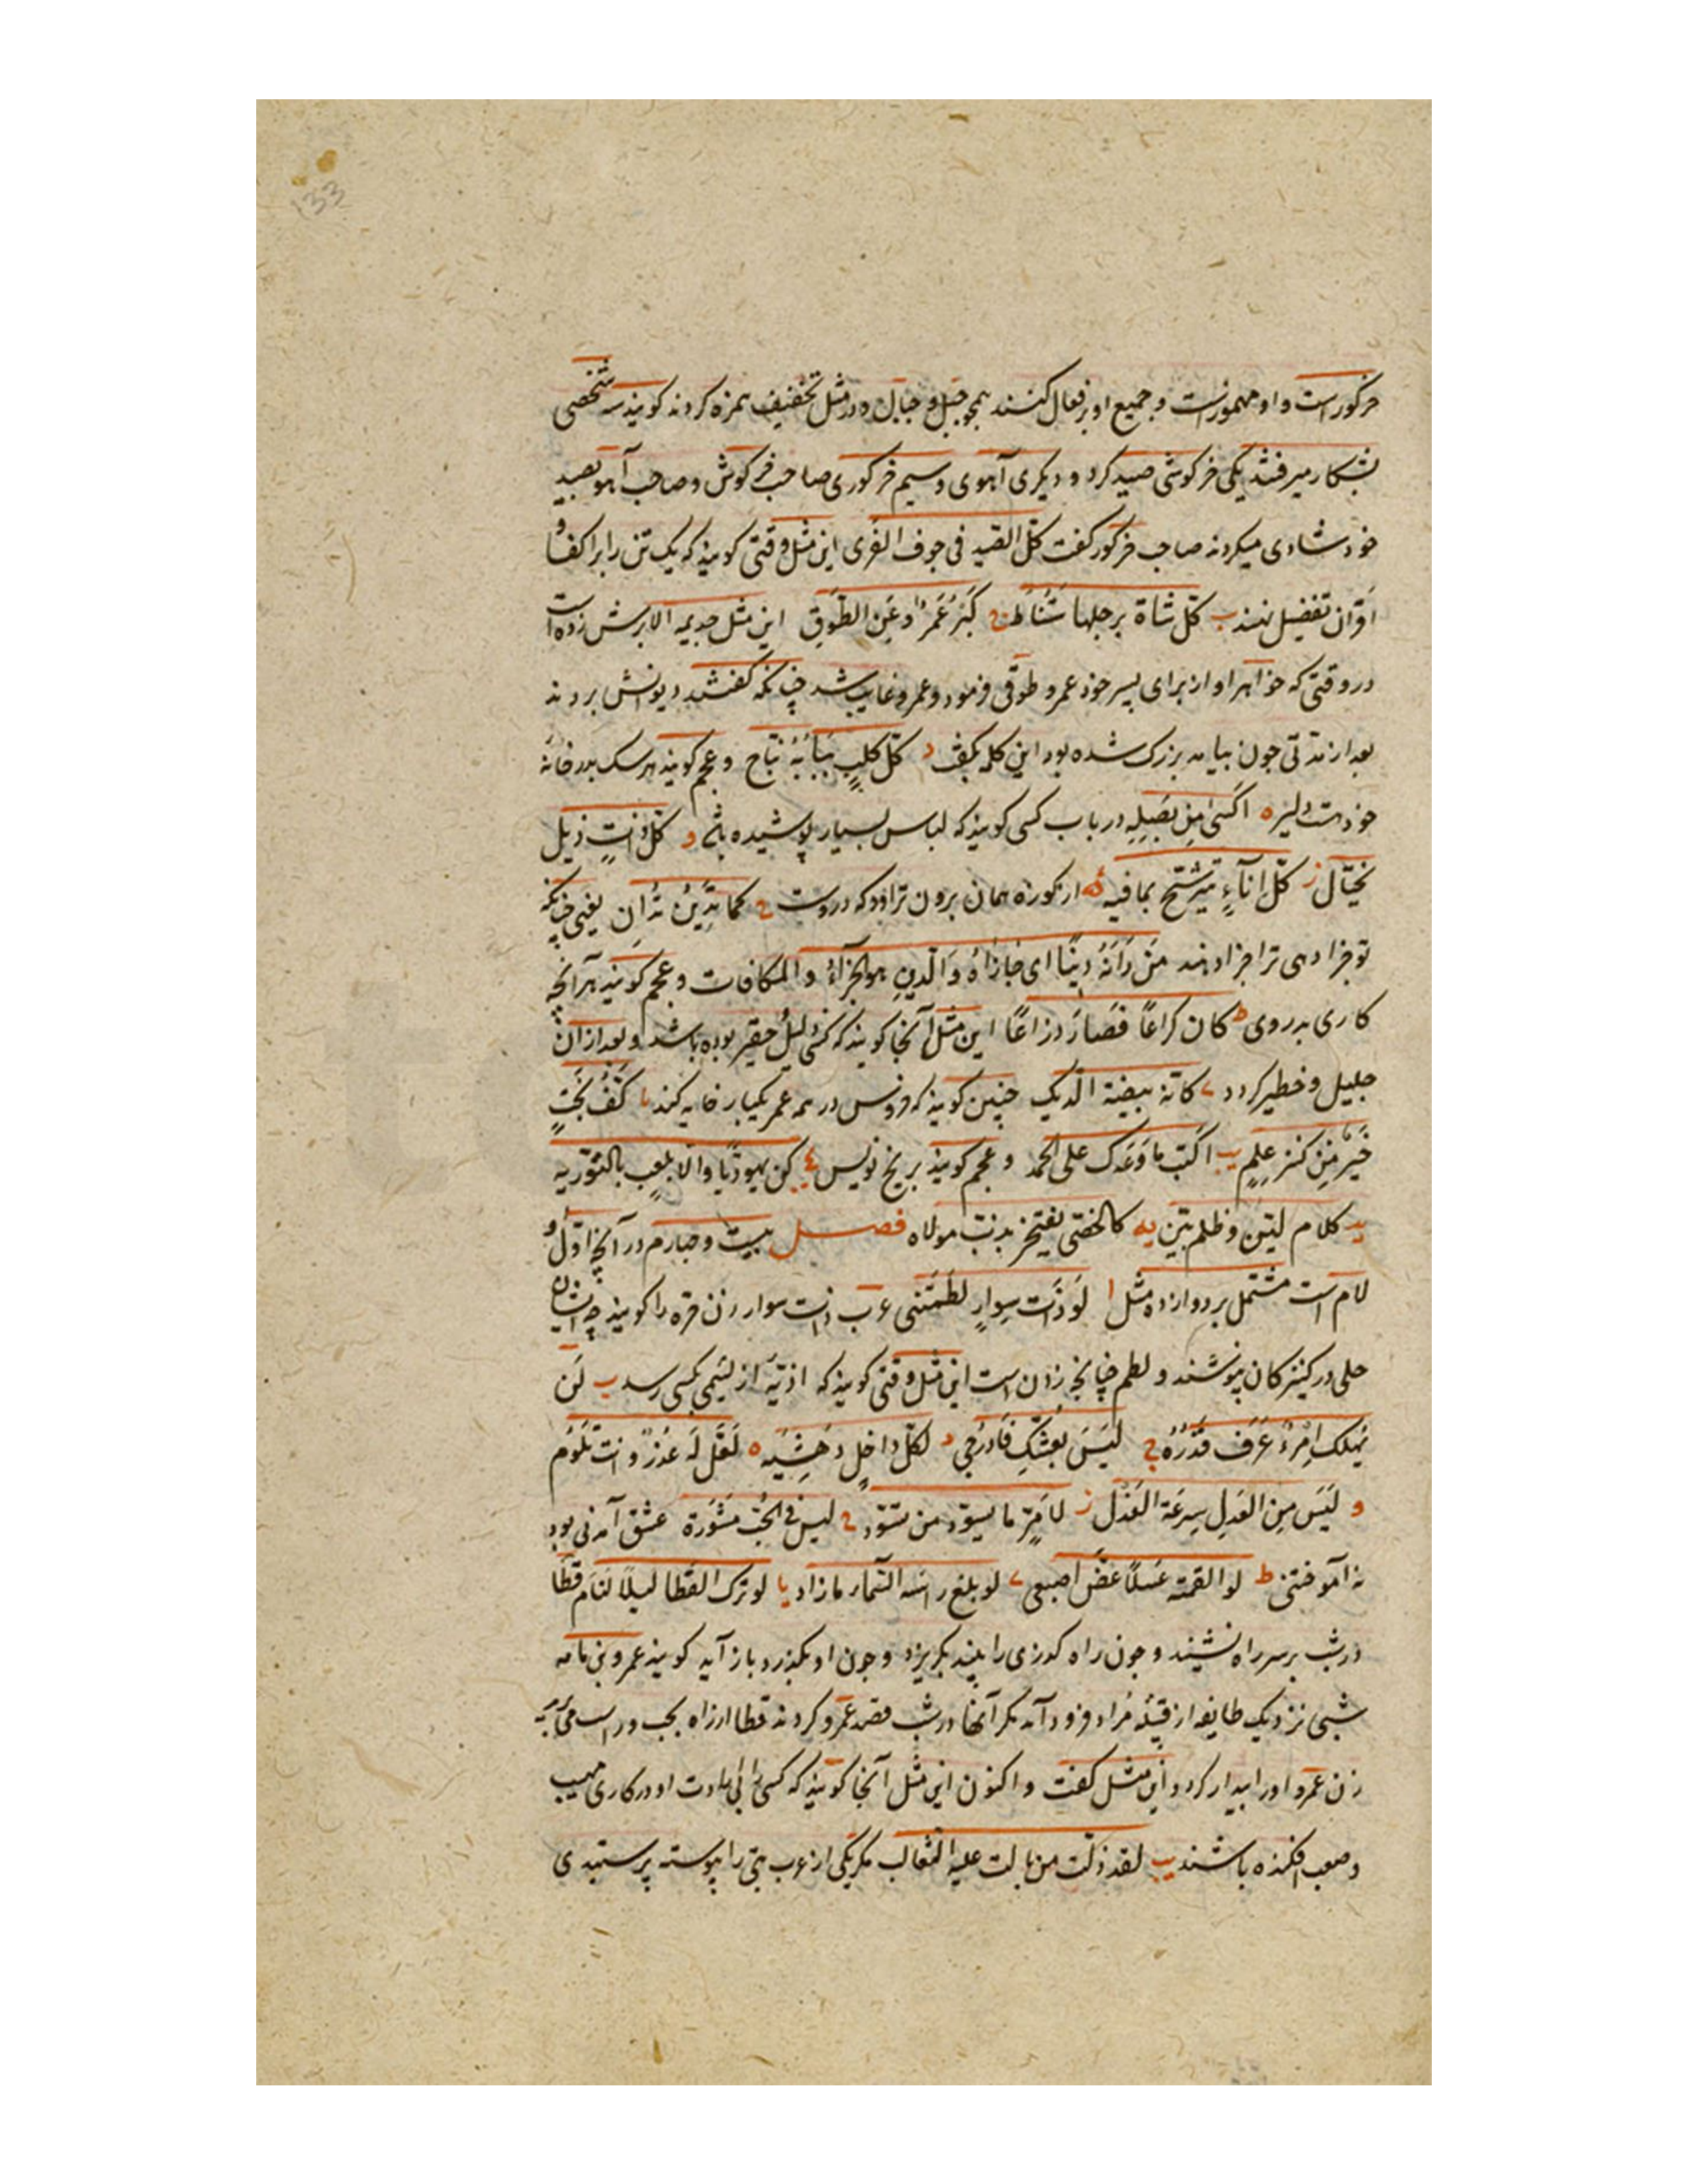 133
خرکورست و او مهموزست و جمیع او بر فعال کنند همچو جبل و جبال و در مثل تخفیف همزه کردند کویند سه شخصی
بشکار میرفتند یکی خرکوشی صید کرد و دیکری آهوی و سیم خرکوری صاحب خرکوش و صاحب آهو بصید
خود شادی میکردند صاحب خرکور کفت کل الصید فی جوف الفری این مثل وقتی کویند که یک تن را بر اکفا و
اقران تفضیل نهند ب کل شاة برجلها ستناط ج کبر عمرو عن الطوق این مثل جذیمه الابرش زده است
در وقتی که خواهر او از برای پسر خود عمرو طوقی فرمود و عمرو غایب شد چنانکه کفتند دیوانش بردند
بعد از مدتی جون بیامد بزرک شده بود این کلمه بکفت د کل کلب ببابه نباح و عجم کویند هر سک بدر خانه
خود دلیر ه اکسی من بصله در باب کسی کویند که لباس بسیار پوشیده باشد و کل ذات ذیل
تختال ز کل اناء یترشح بما فیه از کوزه همان برون تراود که دروست ح کما تدین تدان یعنی چنانکه
تو جزا دهی ترا جزا دهند من دانه دینا ای جازاه و الدین هو الجزاء و المکافات و عجم کویند هر آنچه
کاری بدروی ط کان کراعا فصار ذراعا این مثل آنجا کویند که کسی ذلیل حقیر بوده باشد و بعد از آن
جلیل و خطیر کردد ی کانه بیضة الدیک چنین کویند که خروس در همه عمر یکبار خایه کند یا کف بخت
خیر من کنز علم یب اکتب ما وعدک علی الجمد و عجم کویند بر یخ نویس کن یهودیا و الا تلعب بالتوریه
ید کلام لین و ظلم بین یه کالخصی یفتخر بذنب مولاه فصل بیست و جهارم در آنچ اول او
لام است مشتمل بر دوازده مثل ا لو ذات سوار لطمتنی عرب ذات سوار زن حره را کویند چه ایشان
حلی در کنیزکان نپوشند و لطم طپانچه زدن است این مثل وقتی کویند که اذیته از لئیمی بکسی رسد ب لن
یهلک امرء عرف قدره ج لیس بعشک فادرجی د لکل داخل دهشیه ه لعل له عذر و انت تلوم
و لیس من العدل سرعة العذل ز لامر ما یسود من یسود ح لیس فی الحب مشورة عشق آمدنی بود
نه آموختنی ط لو القمته عسلا عض اصبعی ی لو بلغ راسه السماء ما زاد یا لو ترک القطا لیلا لنام قطا
در شب بر سر راه نشیند و جون راه کذری را بیند بکریزد و جون او بکذرد باز آید کویند عمرو بن مامه
شبی نزدیک طایفه از قبیله مراد فرود آمد مکر آنها در شب قصد عمرو کردند قطا از راه بجست و
زن عمرو او را بیدار کرد و این مثل کفت و اکنون این مثل آنجا کویند که کسی را بی ارادت او در کاری مهیب
و صعب افکنده باشند یب لقد ذلت من بالت علیه الثعالب مکر یکی از عرب بتی را پیوسته پرستیدی